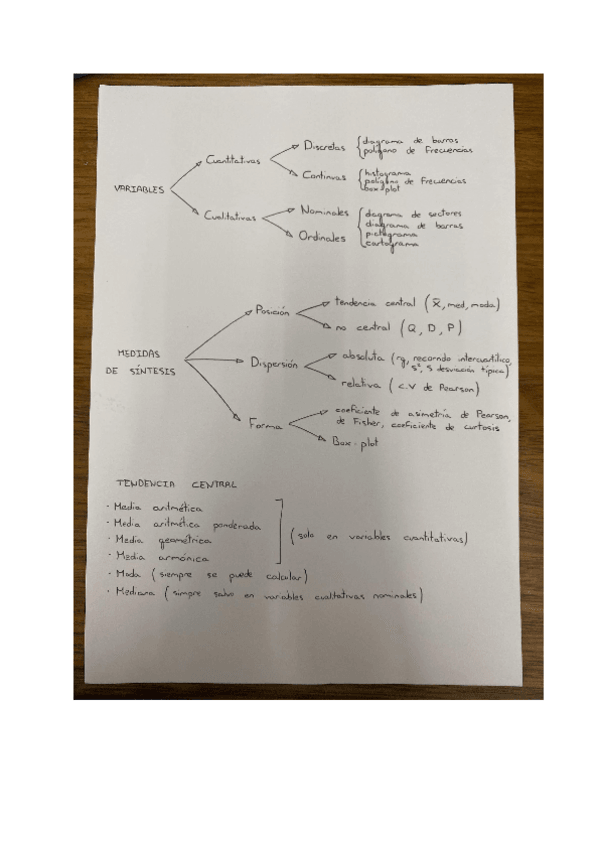 VARIABLES
Cuantitativas
Discretas
diagrama de barras
polígono de Frecuencias
Continuas
histograma
polígono de Frecuencias
box-plot
Cualitativas
Nominales
Ordinales
diagrama de sectores
diagrama de barras
pictograma
cartograma
MEDIDAS
DE SÍNTESIS
Posición
tendencia central (x̄, med, moda)
no central (Q, D, P)
Dispersión
absoluta (rg, recorrido intercuartílico,
s², s desviación típica)
relativa (C.V de Pearson)
Forma
coeficiente de asimetría de Pearson,
de Fisher, coeficiente de curtosis
Box-plot
TENDENCIA CENTRAL
· Media aritmética
· Media aritmética ponderada
· Media geométrica
· Media armónica
(solo en variables cuantitativas)
· Moda (siempre se puede calcular)
· Mediana (siempre salvo en variables cualitativas nominales)